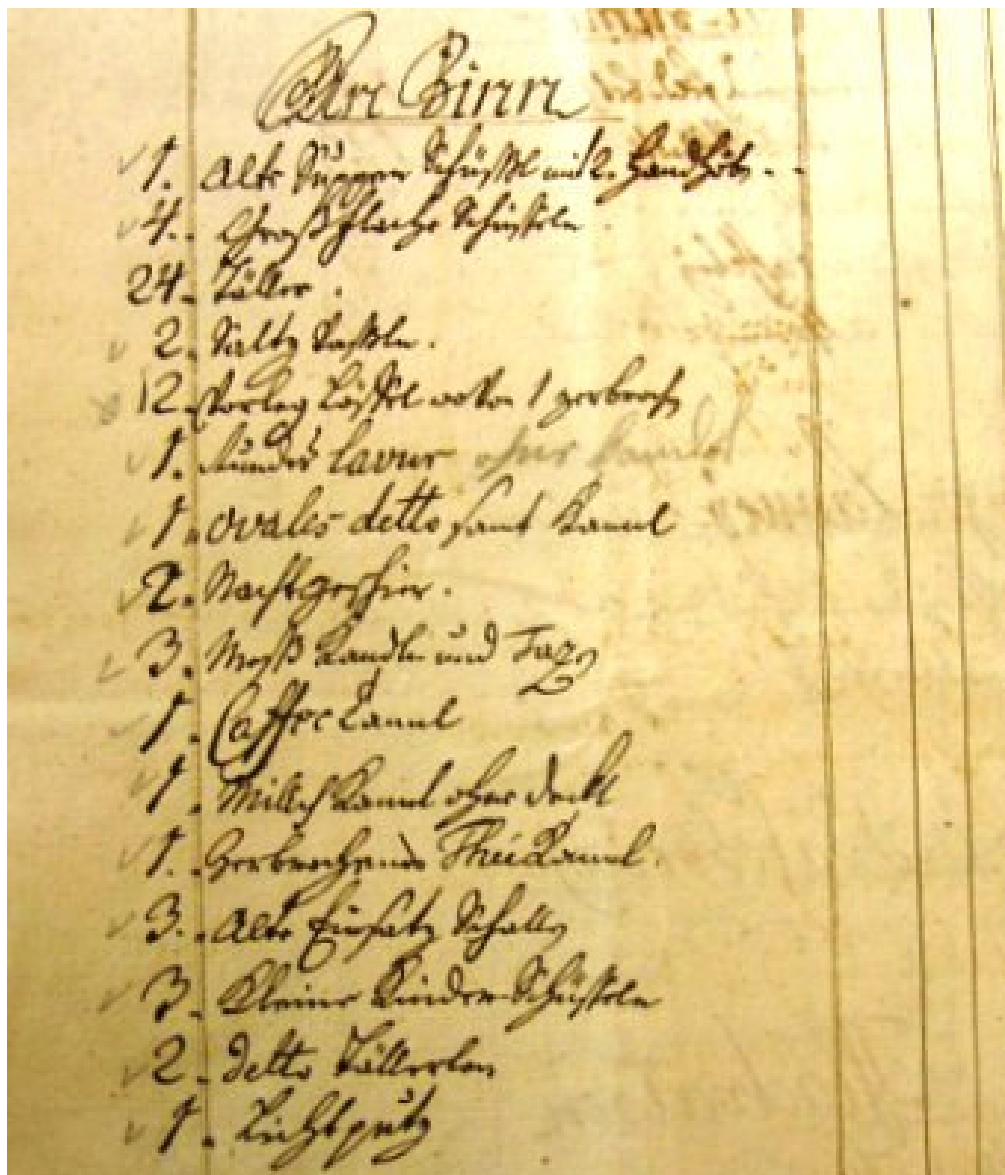 An Zinn
1. Alte Suppen Schüssl mit 2. Handhöb
4. Groß flache Schüsseln.
24. Täller.
2. Saltz
12. Vorleg Löffel wovon 1 zerbroch
1. Rundes lavur ohne Kandl
1. ovales detto samt Kanl
2. Nachtgeschier.
3. Meß Kandln und Taz
1. Caffee Kanl
1. Millch Kanl ohne Deckl
1. Zerbrochene Thee Kanl.
3. Alte Einsatz Schalln
3. Kleine Kinder Schüsseln
2. detto Tällerln
1. Lichtputz